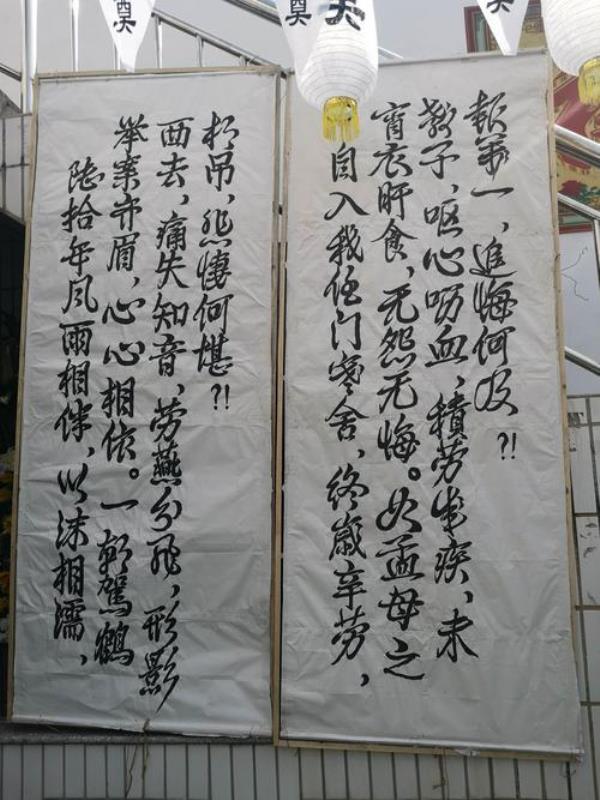 奠
奠
奠
奠
陆拾年风雨相伴，以沫相濡，
举案齐眉，心心相依。一朝驾鹤
西去，痛失知音，劳燕分飛，形影
相吊，悲悽何堪?!
自入我伍门寒舍，终岁辛劳，
宵衣旰食，无怨无悔。如孟母之
教子，呕心呖血，積劳生疾，未
報萬一，追悔何及?!